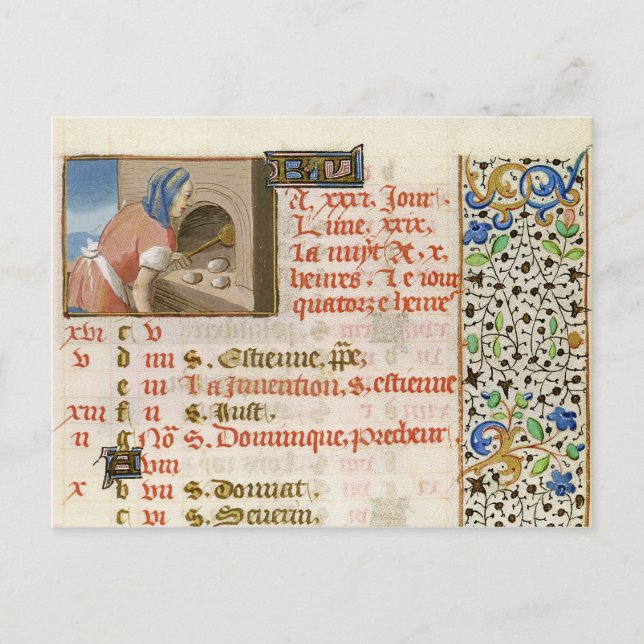 A, xxxi, Jour,
Lune, xxix,
La nuyt A, x,
heures, Le iour
quatorze heures
xvi c v
v d iiii S. Estienne, ppe,
e iii La Invention, S. estienne
xiii f ii S. Just,
ii g No S. Dominique, precheur
A viii
x b vii S. Donnat,
c vi S. Severin,